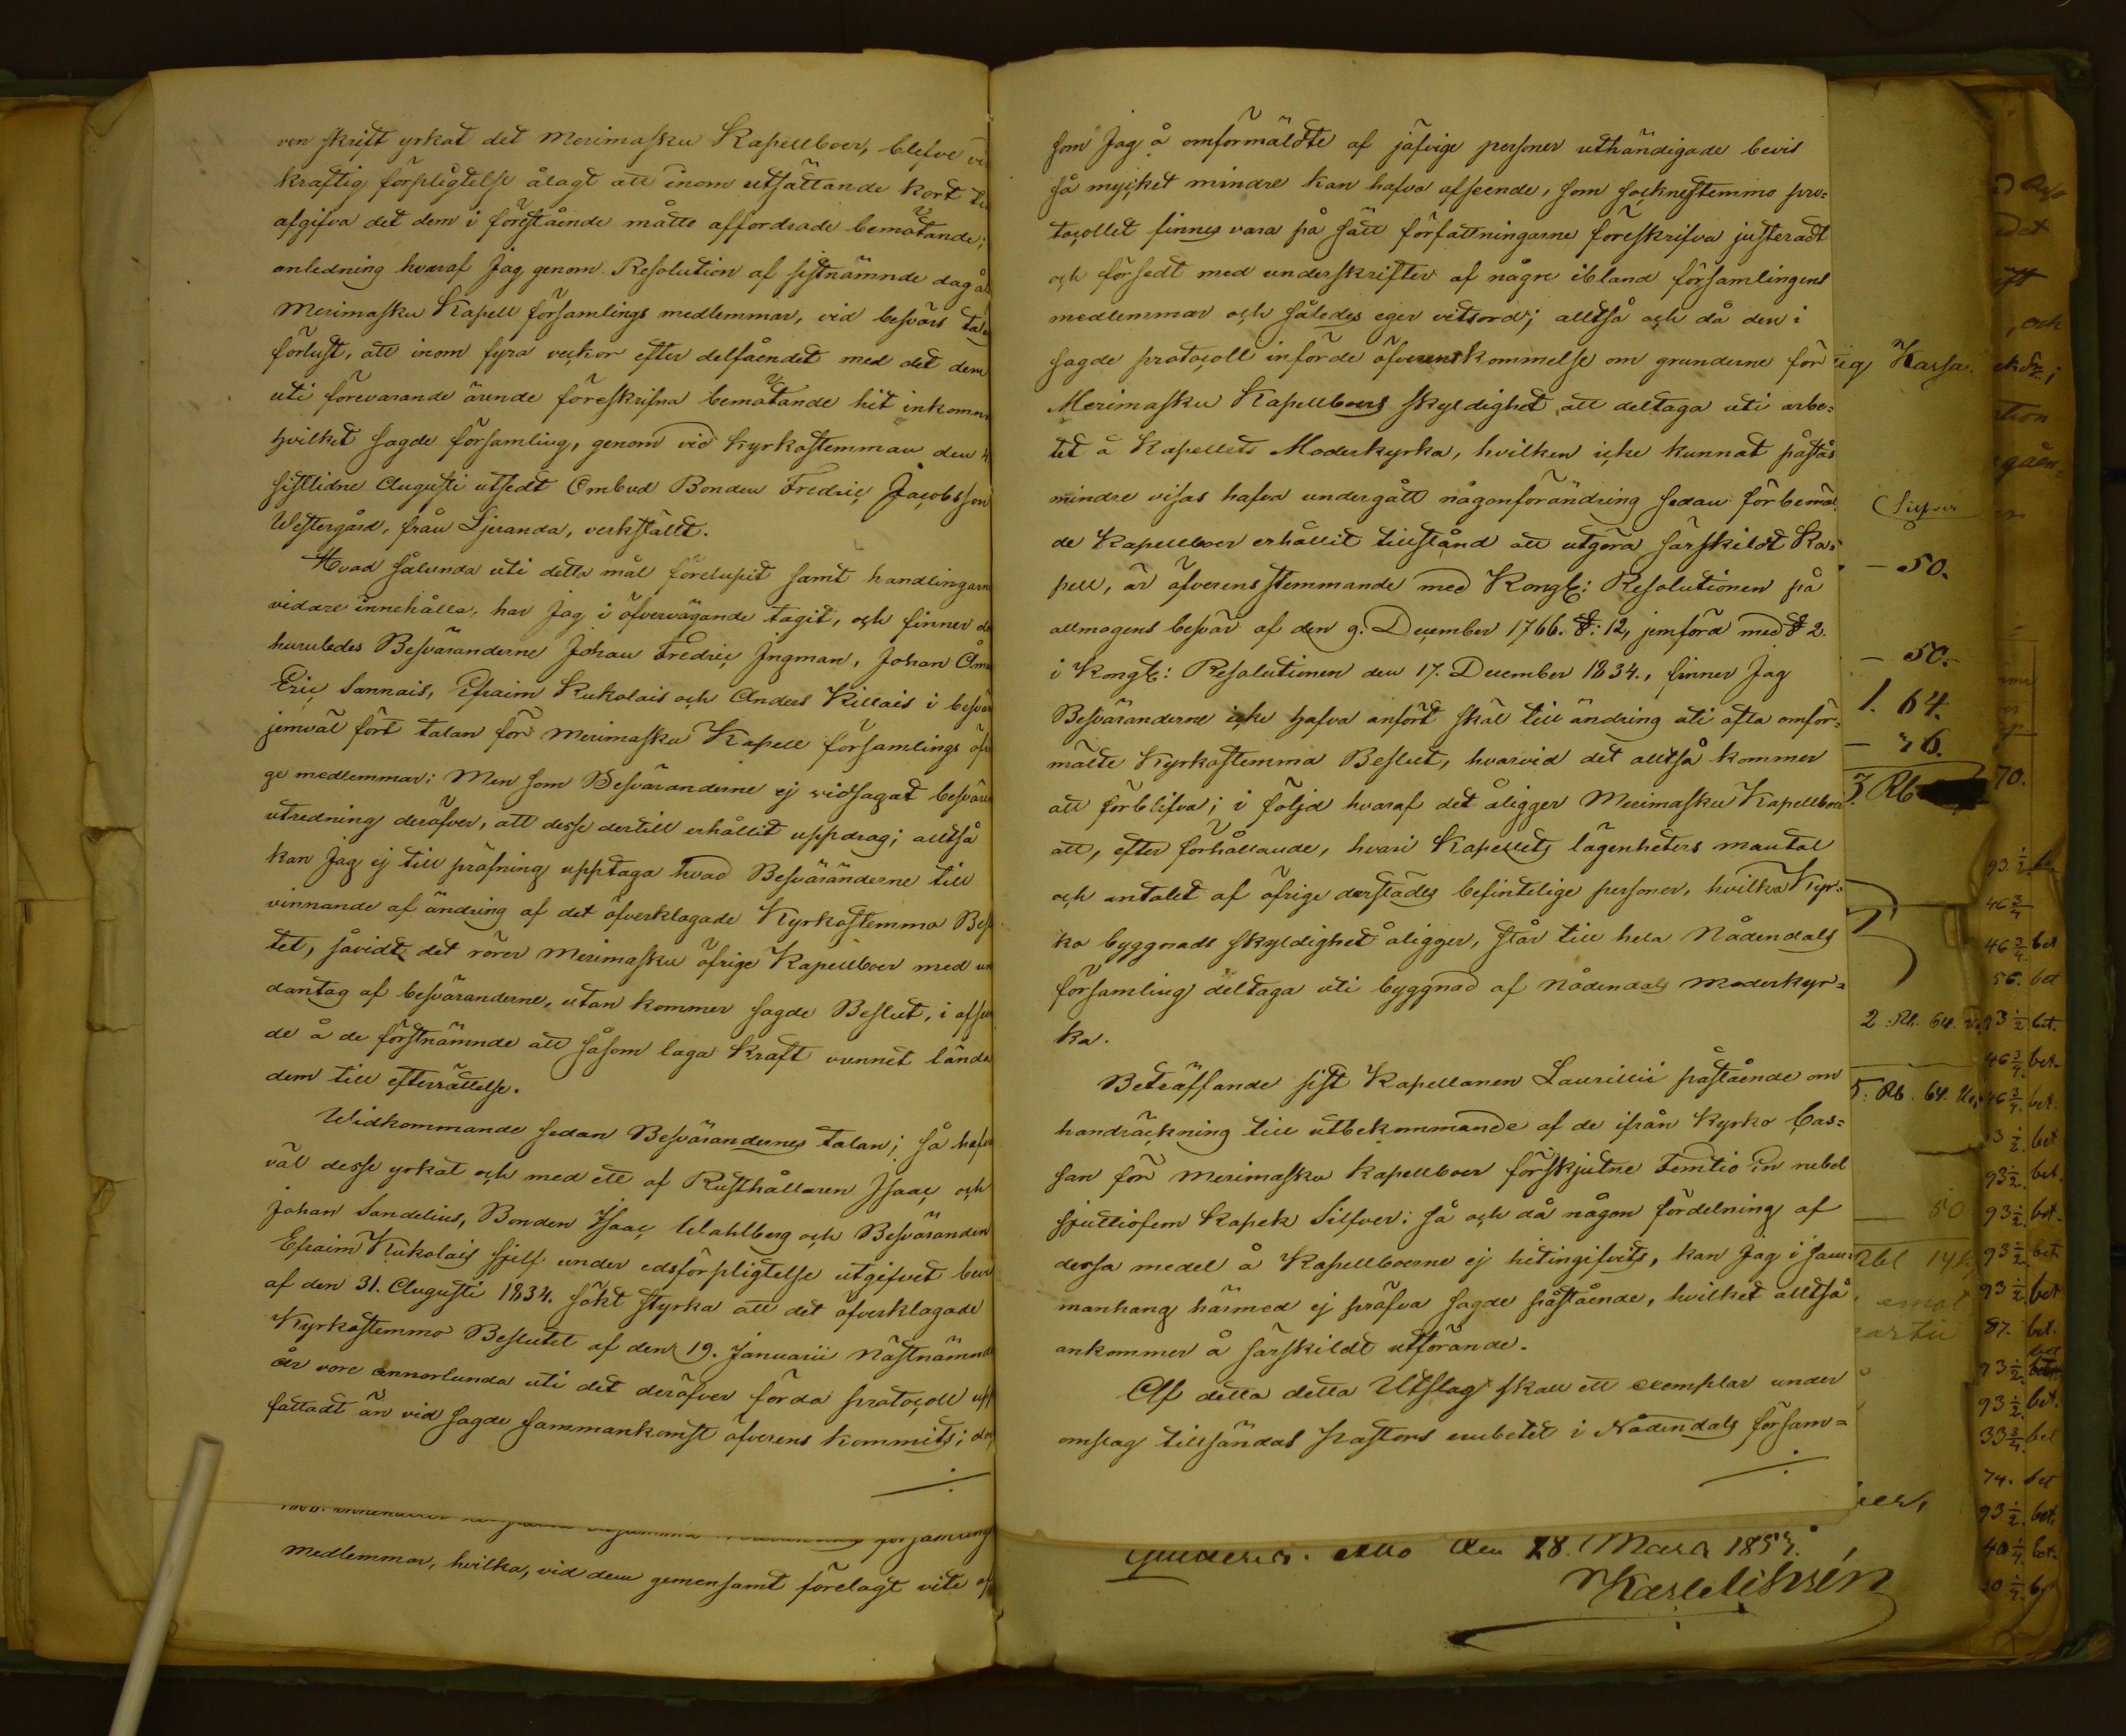 ren skrift yrkat det Merimasku Kapellboer, blefve vi
kraftig förpligtelse ålagt att inom utsättande kort ti
afgifva det dem i förestående måtto affordrade bemötande;
anledning hvaraf Jag genom Resolution af sistnämnde dag ål
Merimasku Kapell församlings medlemmar, vid besvärs talan
förlust, att inom fyra veckor efter delfåendet med det dem
uti förevarande ärende föreskrifna bemötande hit inkomma
hvilket sagde församling, genom vid Kyrkostemman den 4
sistlidne Augusti utsedt Ombud Bonden Fredric Jacobsson
Westergård, från Ljeranda, verkställt.
Hvad sålunda uti detta mål förelupit samt handlingarne
vidare innehålla, har Jag i öfvervägande tagit, och finner då
huruledes Besväranderne Johan Fredric Ingman, Johan Åm
Eric Sannais, Efraim Kukolais och Anders Killais i besvär
jemväl fört talan för Merimasku Kapell församlings öfri
ge medlemmar; Men som Besväranderne ej vidsagat besväre
utredning deröfver, att desse dertill erhållit uppdrag; alltså
kan Jag ej till pröfning upptaga hvad Besväränderne till
vinnande af ändring af det öfverklagade Kyrkostemmo Beslu
tet, såvidt det rörer Merimasku öfrige Kapellboer med un
dantag af besväranderne, utan kommer sagde Beslut, i afseen
de å de förstnämnde att såsom laga kraft vunnet lända
dem till efterrättelse.
Widkommande sedan Besvärandernes talan; så hafva
väl desse yrkat och med ett af Rusthållaren Isaac och
Johan Sandelius, Bonden Isaac Wahlberg och Besväranden
Efraim Kukolais sjelf under edsförpligtelse utgifvet bevi
af den 31. Augusti 1834. sökt styrka att det öfverklagade
Kyrkostemmo Beslutet af den 19. Januarii nästnämnde
år vore annorlunda uti det deröfver förda protocoll upp
fattadt än vid sagde sammankomst öfverens kommits; doc
medlemmar, hvilka, vid dem gemensamt förelagt vite af
som Jag å omförmäldte af jäfvige personer uthändigade bevis
så mycket mindre kan hafva afseende, som sockenstemmo pro=
tocollet finnes vara på sätt författningarne föreskrifva justeradt
och försedt med underskrifter af någre ibland församlingens
medlemmar och således eger vitsord; alltså och då den i
sagde protocoll införde öfverenskommelse om grunderne för
Merimasku Kapellboers skyldighet att deltaga uti arbe=
tet å Kapellets Moderkyrka, hvilken icke kunnat påstås
mindre visas hafva undergått någonförändring sedan förbemäl
de Kapellboer erhållit tillstånd att utgöra särskildt Ka=
pell, är öfverensstemmande med Kongl: Resolutionen på
allmogens besvär af den 9. December 1766. §: 12, jemförd med § 2.
i Kongl: Resolutionen den 17. December 1834., finner Jag
Besväranderne icke hafva anfört skäl till ändring uti ofta omför=
mälte Kyrkostemma Beslut, hvarvid det alltså kommer
att förblifva; i följd hvaraf det åligger Merimasku Kapellboer
att, efter förhållande, hvari Kapellets lägenheters mantal
och antalet af öfrige derstädes befintelige personer, hvilka Kyr=
ko byggnads skyldighet åligger, står till hela Nådendals
församling deltaga uti byggnad af Nådendals Moderkyr=
ka.
Beträffande sist Kapellanen Laurellii påstående om
handräckning till utbekommande af de ifrån Kyrko Cas=
san för Merimasku kapellboer förskjutne Femtio En rubel
sjuttiofem Kopek Silfver; så och då någon fördelning af
dessa medel å Kapellboerne ej hitingifvits, kan Jag i sam=
manhang härmed ej pröfva sagde påstående, hvilket alltså
ankommer å särskildt utförande.
Af detta detta Utslag skall ett exemplar under
omslag tillsändas Pastors embetet i Nådendals försam=
den 28. Mars
ig Kassa.
Silfver
— 50.
— 50.
1. 64.
3 Rb
2 Rb. 64.
5. Rb. 64.
50
70.
93 1/2
46 3/4
46 3/4 bet
56. bet
93 1/2 bet.
46 3/4 bet.
46 3/4. bet.
93 1/2. bet.
93 1/2. bet.
93 1/2. bet.
93 1/2. bet
87. bet.
93 1/2.
93 1/2. bet.
33 3/4. bet
74. bet
93 1/2. bet.
40 1/4. bet.